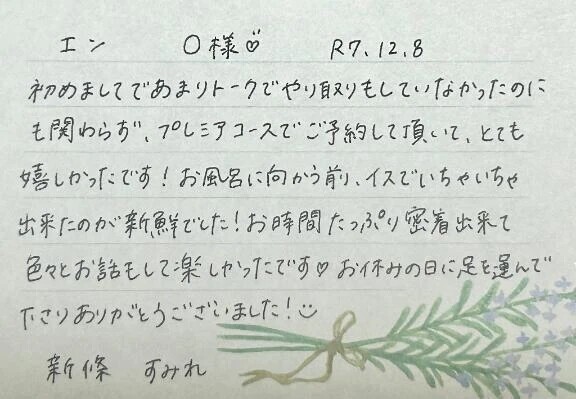 エン 〇様♡ R7.12.8
初めましてであまりトークでやり取りもしていなかったのに
も関わらず、プレミアコースでご予約して頂いて、とても
嬉しかったです！お風呂に向かう前、イスでいちゃいちゃ
出来たのが新鮮でした！お時間たっぷり密着出来て
色々とお話もして楽しかったです♡お休みの日に足を運んで
下さりありがとうございました！☺
新條 すみれ